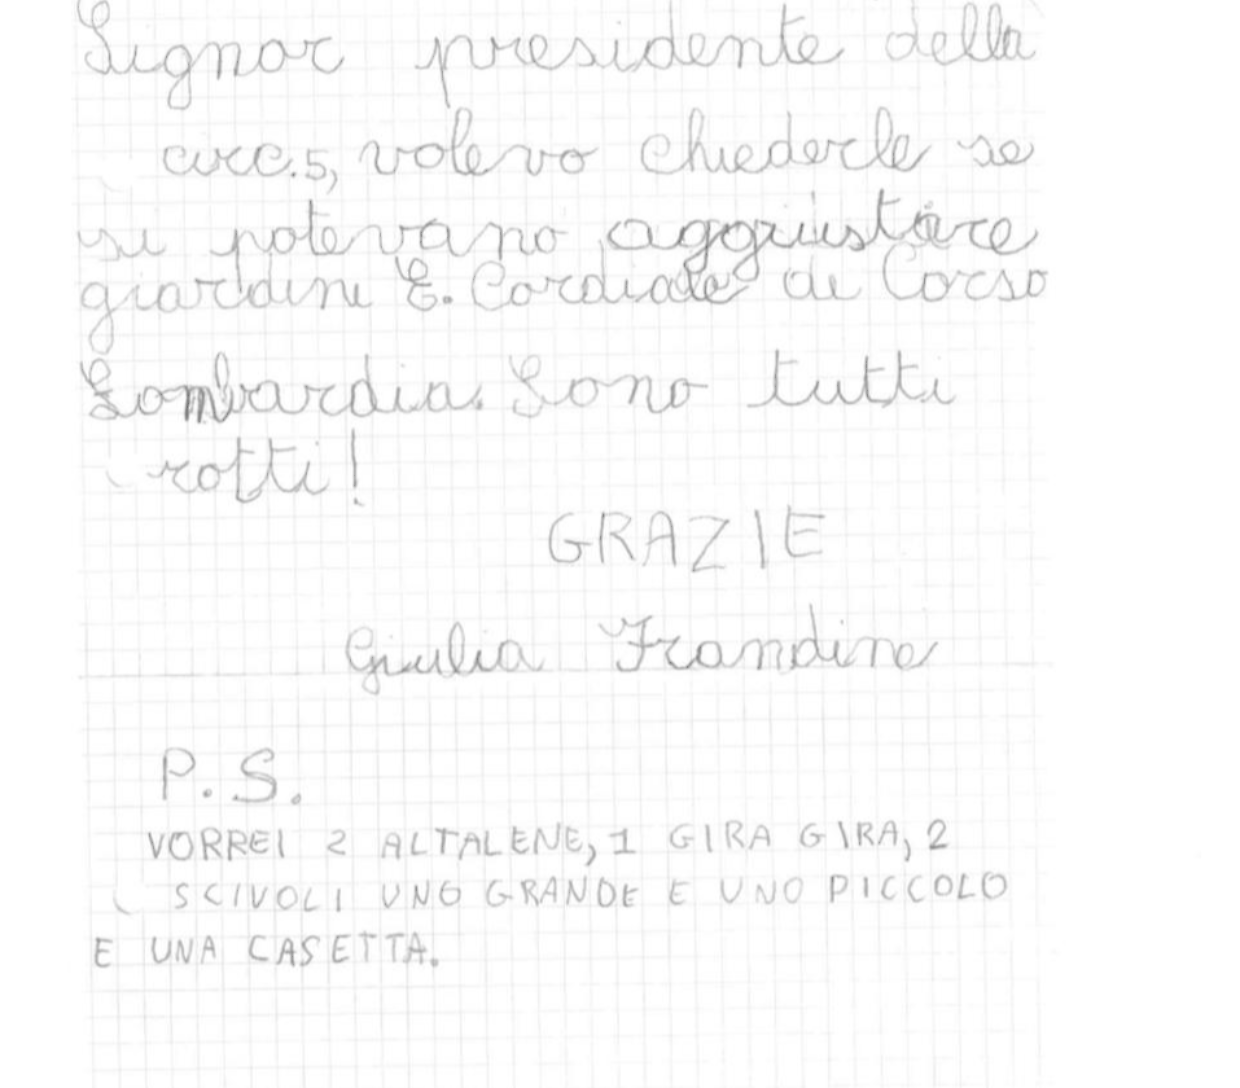 Signor presidente della
circ.5, volevo chiederle se
si potevano aggiustare
giardini E. Cordiale di Corso
Lombardia. Sono tutti
rotti!
GRAZIE
Giulia Frandino
P.S.
VORREI 2 ALTALENE, 1 GIRA GIRA, 2
SCIVOLI UNO GRANDE E UNO PICCOLO
E UNA CASETTA.